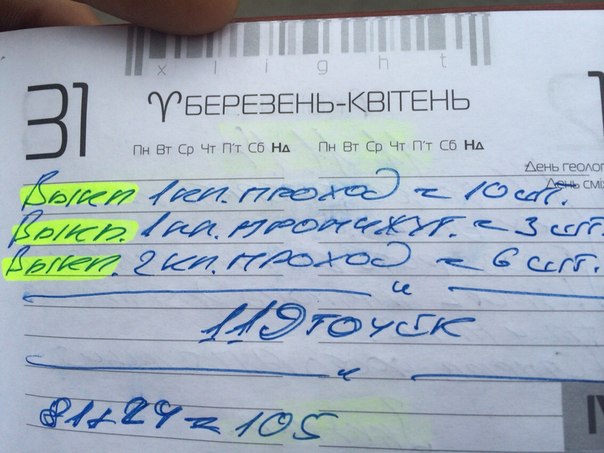 xlight
31
♈БЕРЕЗЕНЬ-КВІТЕНЬ
Пн Вт Ср Чт П'т Сб Нд Пн Вт Ср Чт П'т Сб Нд
День геолог
День смі
Выкл 1кл. проход = 10 шт.
Выкл. 1кл. промижут. = 3 шт.
Выкл. 2кл. проход = 6 шт.
119 точек
81+24=105